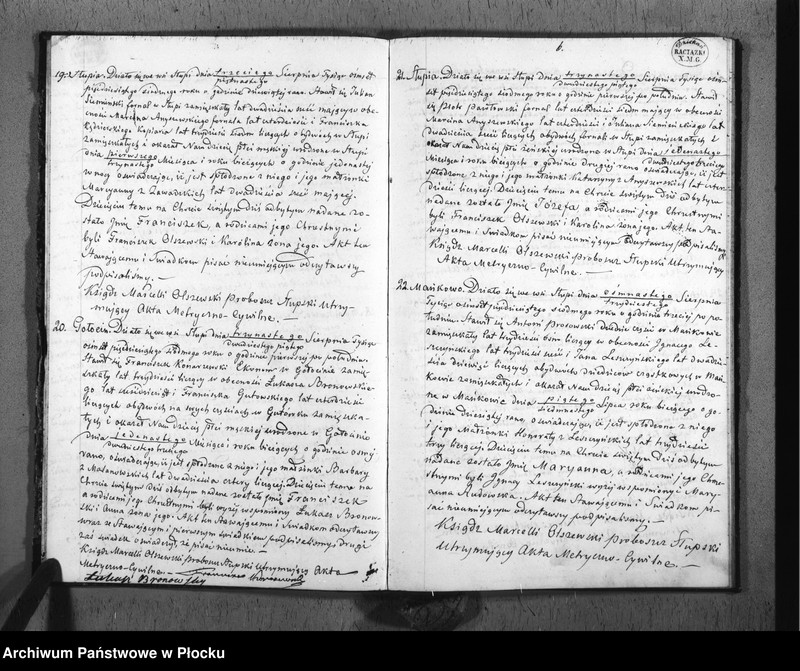 19. Słupia. Działo się we wsi Słupi dnia trzeciego Sierpnia Tysiąc ośmset
piętnastego
pięćdziesiątego siódmego roku o godzinie dziewiątej rano. Stawił się Julian
Siemiński fornal w Słupi zamieszkały lat dwadzieścia sześć mający w obe-
cności Marcina Anyszewskiego fornala lat czterdzieści i Franciszka
lat trzydzieści siedm liczących obydwóch w Słupi
zamieszkałych i okazał Nam dziecię płci męskiej urodzone w Słupi
dnia pierwszego Miesiąca i roku bieżących o godzinie jedenastej
trzynastego
w nocy oświadczając, że jest spłodzone z niego i jego małżonki
Maryanny z Zawadzkich lat dwadzieścia sześć mającej.
Dziecięciu temu na Chrzcie świętym dziś odbytym nadane zo-
stało Imię Franciszek, a rodzicami jego Chrzestnymi
byli Franciszek Olszewski i Karolina żona jego. Akt ten
Stawającemu i Świadkom pisać nieumiejącym odczytawszy
podpisaliśmy. —
Ksiądz Marcelli Olszewski Proboszcz Słupski Utrzy-
mujący Akta Metryczno-Cywilne. —
20. Gotocin. Działo się we wsi Słupi dnia trzynastego Sierpnia Tysiąc
dwudziestego piątego
ośmset pięćdziesiątego siódmego roku o godzinie pierwszej po południu.
Stawił się Franciszek Konarzewski Ekonom w Gotocinie zamie-
szkały lat trzydzieści liczący w obecności Łukasza Bronowskie-
go lat i Franciszka Gutowskiego lat czterdzieści
liczących obydwóch na swych częściach w zamieszka-
łych i okazał Nam dziecię płci męskiej urodzone w Gotocinie
dnia jedenastego Miesiąca i roku bieżących o godzinie ósmej
dwudziestego trzeciego
rano, oświadczając, że jest spłodzone z niego i jego małżonki Barbary
z lat dwadzieścia cztery liczącej. Dziecięciu temu na
Chrzcie świętym dziś odbytym nadane zostało Imię Franciszek
a rodzicami jego Chrzestnymi byli wyżej wspomniony Łukasz Bronow-
ski i Anna żona jego. Akt ten Stawającemu i Świadkom odczytawszy
wraz ze Stawającym i pierwszym świadkiem podpisaliśmy, drugi
zaś świadek oświadczył, że pisać nieumie —
Ksiądz Marcelli Olszewski Proboszcz Słupski Utrzymujący Akta
Metryczno-Cywilne. — Franciszek Konarzewski
Łukasz Bronowsky
6.
RACIĄŻKA
X.M.G.
21. Słupia. Działo się we wsi Słupi dnia trzynastego Sierpnia Tysiąc ośm-
dwudziestego piątego
set pięćdziesiątego siódmego roku o godzinie pierwszej po południu. Stawił
się Piotr fornal lat czterdzieści siedm mający w obecności
Marcina Anyszewskiego lat czterdzieści i Juliana Siemińskiego lat
dwadzieścia sześć liczących obydwóch fornali w Słupi zamieszkałych i
okazał Nam dziecię płci żeńskiej urodzone w Słupi dnia jedenastego
dwudziestego trzeciego
Miesiąca i roku bieżących o godzinie drugiej rano oświadczając, iż jest
spłodzone z niego i jego małżonki Katarzyny z Anyszewskich lat czter-
dzieści liczącej. Dziecięciu temu na Chrzcie świętym dziś odbytym
nadane zostało Imię Józefa a rodzicami jego Chrzestnymi
byli Franciszek Olszewski i Karolina żona jego. Akt ten Sta-
wającemu i Świadkom pisać nieumiejącym odczytawszy podpisaliśmy
Ksiądz Marcelli Olszewski Proboszcz Słupski Utrzymujący
Akta Metryczno-Cywilne. —
22. Mańkowo. Działo się we wsi Słupi dnia osmnastego Sierpnia
trzydziestego
Tysiąc ośmset pięćdziesiątego siódmego roku o godzinie trzeciej po po-
łudniu. Stawił się Antoni dziedzic części w Mańkowie
zamieszkały lat trzydzieści ośm liczący w obecności Ignacego Le-
szczyńskiego lat trzydzieści sześć i Jana Leszczyńskiego lat dwadzie-
ścia dziewięć liczących obydwóch dziedziców cząstkowych w Mań-
kowie zamieszkałych i okazał Nam dziecię płci żeńskiej urodzo-
ne w Mańkowie dnia piątego Lipca roku bieżącego o go-
siedmnastego
dzinie dziesiątej rano, oświadczając, iż jest spłodzone z niego
i jego Małżonki Honoraty z Leszczyńskich lat trzydzieści
trzy liczącej. Dziecięciu temu na Chrzcie świętym dziś odbytym
nadane zostało Imię Maryanna, a rodzicami jego Chrze-
stnymi byli Ignacy Leszczyński wyżej wspomniony i Mary-
anna Rudowska. Akt ten Stawającemu i Świadkom pi-
sać nieumiejącym odczytawszy podpisaliśmy. —
Ksiądz Marcelli Olszewski Proboszcz Słupski
Utrzymujący Akta Metryczno-Cywilne. —
Archiwum Państwowe w Płocku